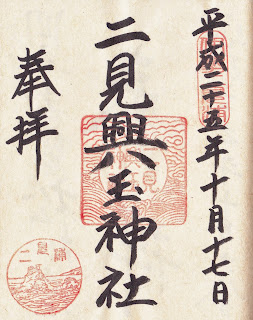 平成二十五年十月十七日
二見興玉神社
奉拝